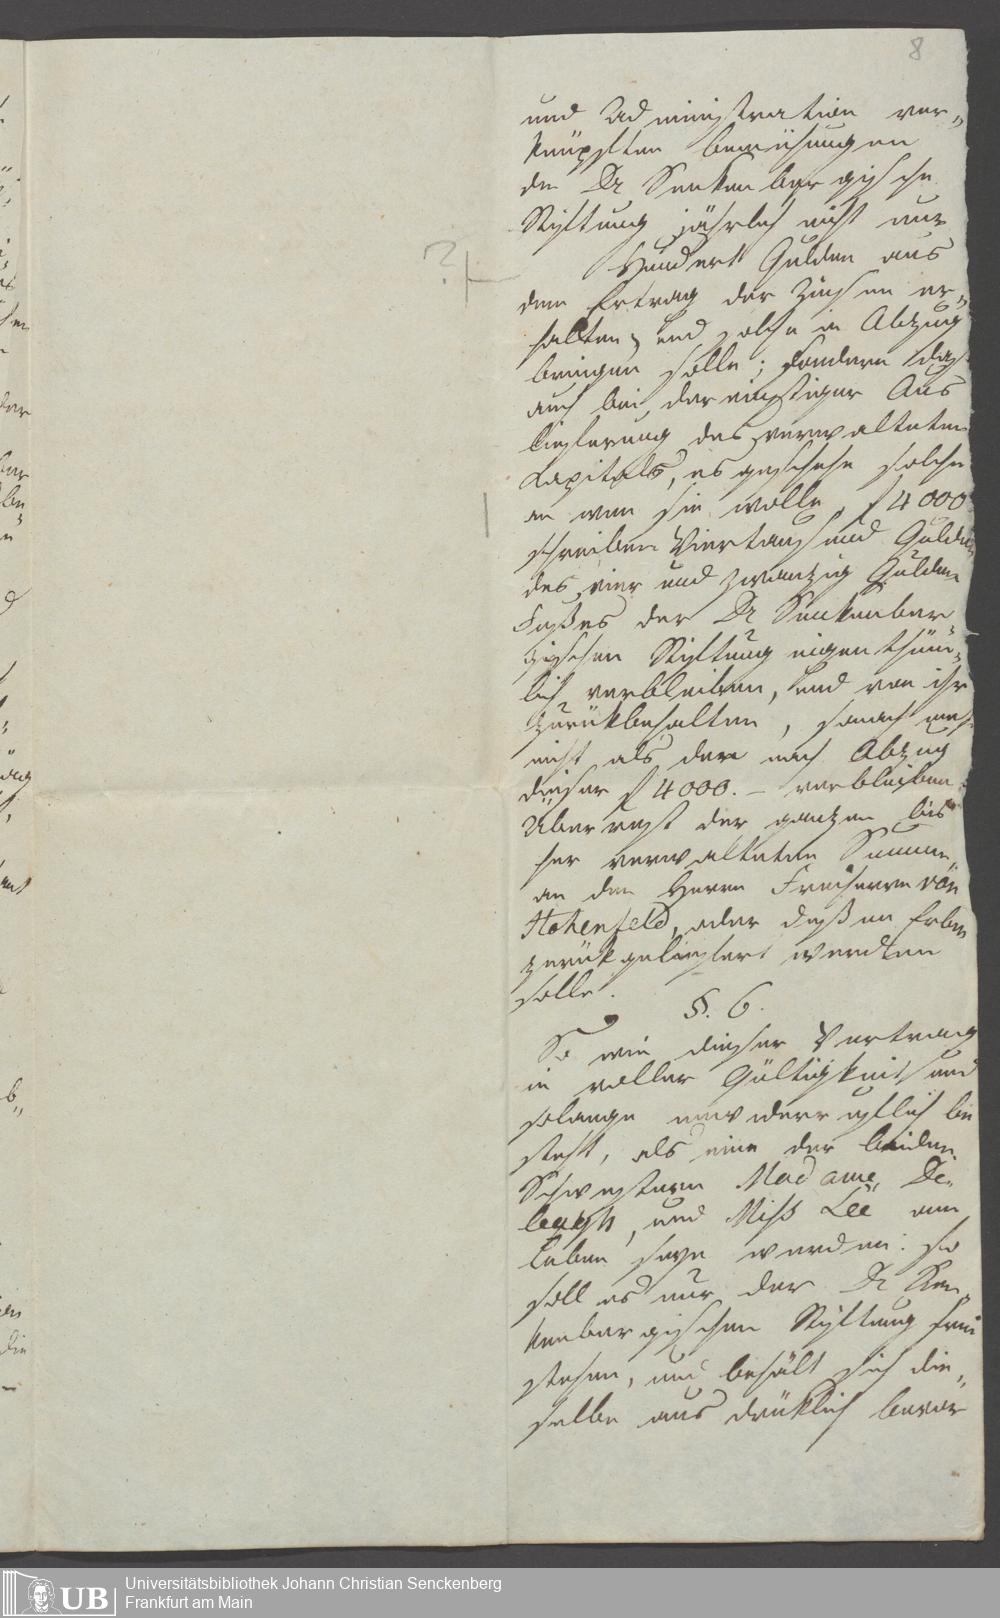 8
und Administration ver„
knüpften bemühungen
die Dr Senkenbergische
Stiftung jährlich nicht nur
Hundert Gulden aus
dem Ertrag der Zinsen er„
halten, und solche in Abzug
bringen solle; sondern daß
auch bei dereinstiger Aus
lieferung des verwalteten
Capitals, es geschehe solche
an wen sie wolle, f 4000
schreiben Viertausend Gulden
des vier und zwanzig Gulden
Fußes der Dr Senkenber„
gischen Stiftung eigenthüm„
lich verbleiben, und von ihr
zurükbehalten, sonach mehr
nicht als der nach Abzug
dieser f 4000. – verbleibene
Überrest der ganzen bis
her verwalteten Summe,
an den Herrn Freiherrn von
Hohenfeld, oder deßen Erben
zurükgeliefert werden
solle.
§. 6.
So wie dieser Vertrag
in voller Gültigkeit und
solange unwiderruflich be
steht, als eine der beiden
Schwestern Madame De„
und Miß Leé am
Leben seyn werden: so
soll es nur der Dr Sen„
kenbergischen Stiftung frei
stehen, und behält sich die„
selbe ausdrüklich bevor
?
UB
Universitätsbibliothek Johann Christian Senckenberg
Frankfurt am Main